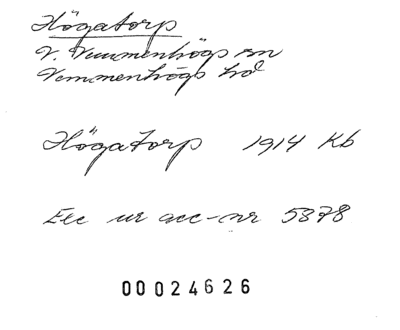 Högatorp
V. Vemmenhögs sn
Vemmenhögs hd
Högatorp 1914 Kb
Exc ur acc-nr 5878
00024626